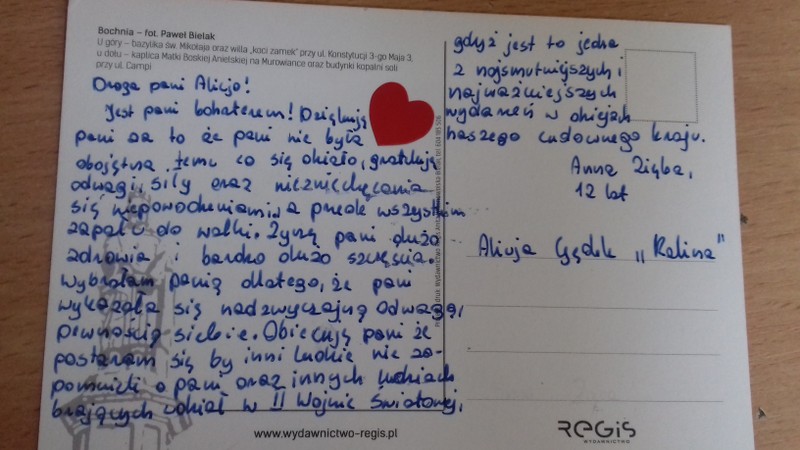 Bochnia – fot. Paweł Bielak
U góry – bazylika św. Mikołaja oraz willa „koci zamek" przy ul. Konstytucji 3-go Maja 3,
u dołu – kaplica Matki Boskiej Anielskiej na Murowiance oraz budynki kopalni soli
przy ul. Campi
Droga pani Alicjo!
Jest pani bohaterem! Dziękuję
pani za to że pani nie była
obojętna temu co się działo, gratuluję
odwagi, siły oraz niezniechęcania
się niepowodzeniami, a przede wszystkim
zapału do walki. Życzę pani dużo
zdrowia i bardzo dużo szczęścia.
Wybrałam panią dlatego, że pani
wykazała się nadzwyczajną odwagą,
pewnością siebie. Obiecuję pani że
postaram się by inni ludzie nie za-
pomnieli o pani oraz innych ludziach
biorących udział w II Wojnie Światowej,
gdyż jest to jedna
z najsmutniejszych i
najważniejszych
wydarzeń w dziejach
naszego cudownego kraju.
Anna Zięba,
12 lat
Alicja Gędek „Kalina"
www.wydawnictwo-regis.pl
REGIS
WYDAWNICTWO